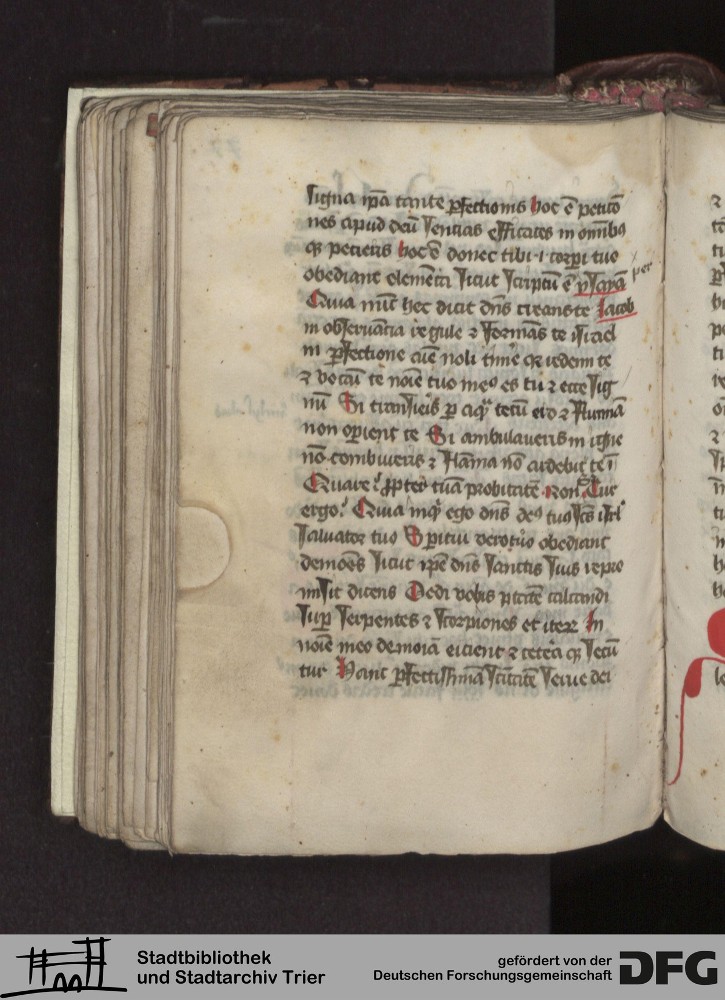 signa ip̄a tante ꝑfectionis hoc ē petitō
nes apud deū sentias efficaces in om̄ibꝯ
q̄ petieris hoc ē donec tibi ·i· corpi tuo
obediant elementa sicut scriptū ē ꝑ
Quia nūc hec dicit dn̄s creans te Jacob
in obseruācia regule ⁊ formās te israel
in ꝑfectione cūe noli timē qꝛ redemi te
⁊ vocaui te noīe tuo meꝯ es tu ⁊ ecce sig
nū Si transieris ꝑ aq̄s tecū ero ⁊ flumīa
non opient te Si ambulaueris in igne
nō combureris ⁊ flāma nō ardebit te ī
Quare? ꝓpter tuā probitatē Non Cur
ergo? Quia inqͥ ego dn̄s deꝯ tuꝯ scs isrl
saluator tuꝯ obediant
demōes sicut ipe dn̄s sanctis suis repro
misit dicens Dedi vobis ptātē calcandi
suꝑ serpentes ⁊ scorpiones et iteꝝ In
noīe meo demoīa eicient ⁊ cetera q̄ secū
tur Hanc ꝑfectissimā scītatē seruꝰ dei
Stadtbibliothek
und Stadtarchiv Trier
gefördert von der
Deutschen Forschungsgemeinschaft
DFG